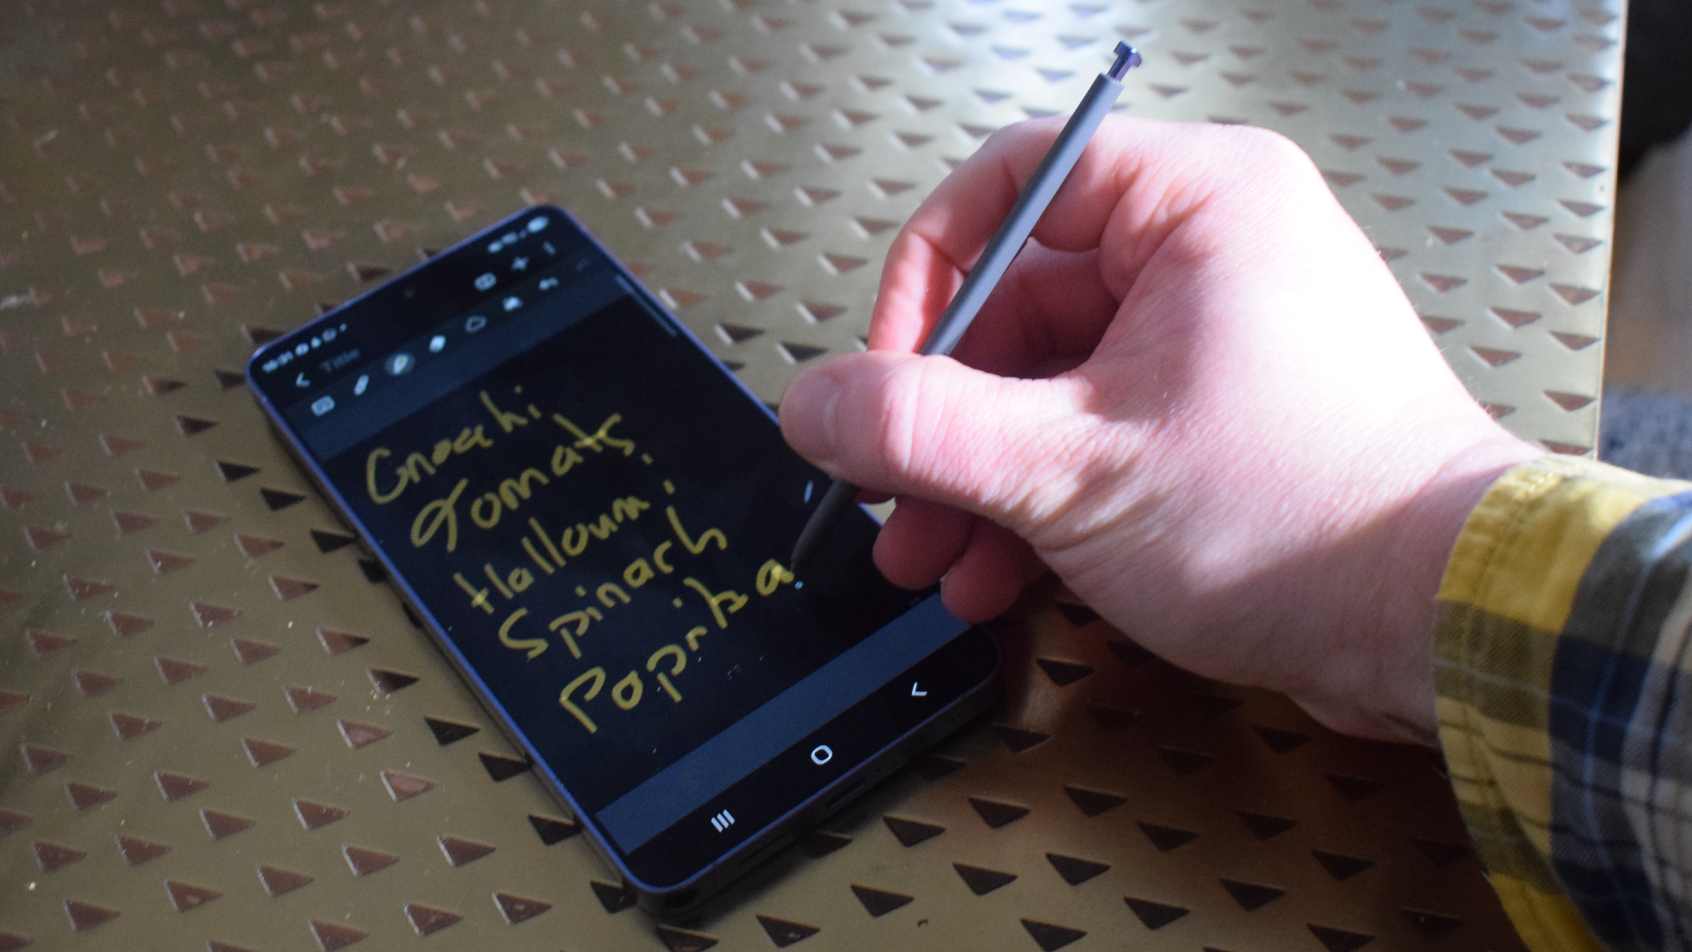 Title
Gnocchi
Tomats
Halloumi
Spinach
Paprika